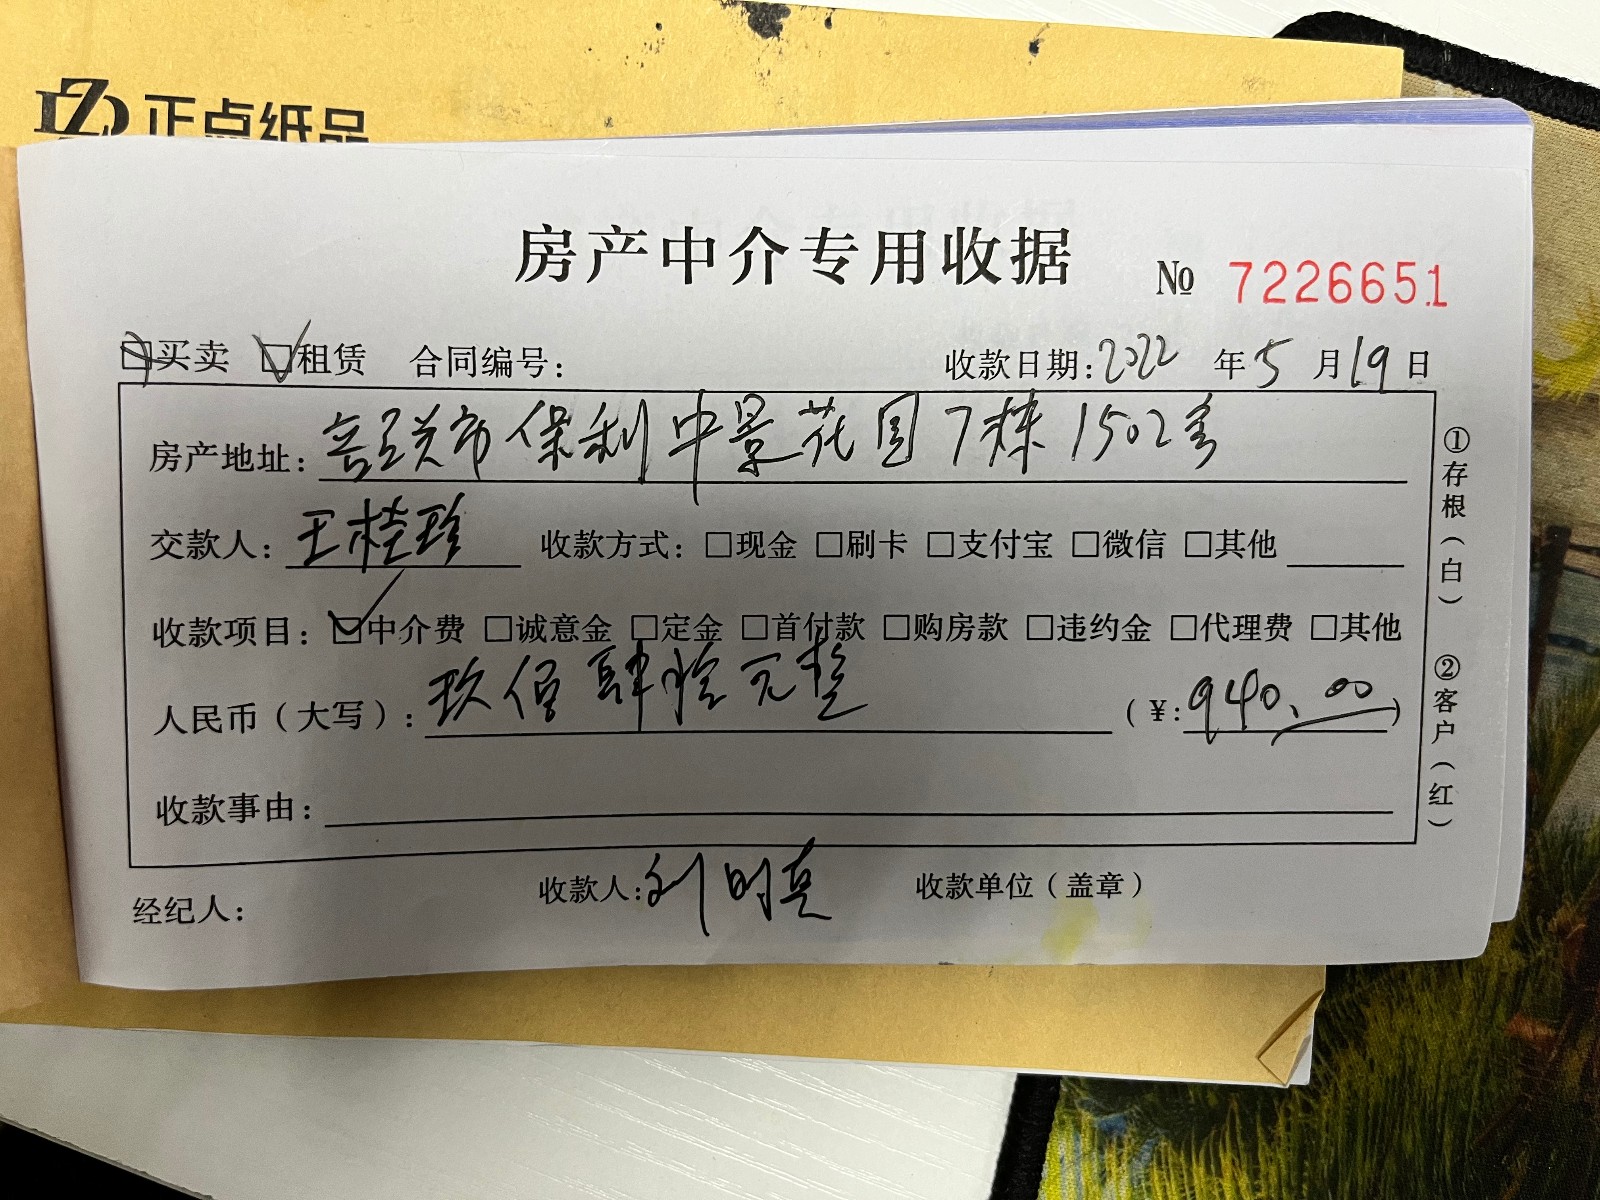 正点纸品
房产中介专用收据 № 7226651
□买卖 ☑租赁 合同编号: 收款日期:2022 年 5 月 19 日
房产地址: 市保利中景花园7栋1502
交款人: 王桂珍 收款方式: □现金 □刷卡 □支付宝 □微信 □其他
收款项目: ☑中介费 □诚意金 □定金 □首付款 □购房款 □违约金 □代理费 □其他
人民币(大写): 玖佰肆拾元整 (¥:940.00)
收款事由:
经纪人: 收款人:刘 收款单位(盖章)
①存根(白) ②客户(红)